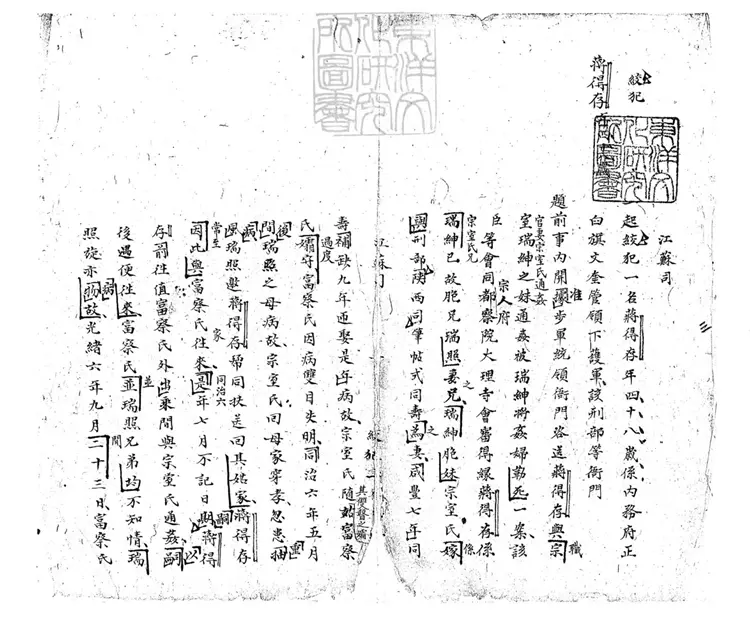 絞犯
蔣得存
江蘇司
起絞犯一名蔣得存年四十八歲係內務府正
白旗文奎管領下護軍該刑部等衙門
題前事內開准步軍統領衙門咨送蔣得存與宗
室瑞紳之妹通姦被瑞紳將姦婦勒死一案該
臣等會同都察院大理寺會審得緣蔣得存係
宗室氏兄
瑞紳已故胞兄瑞照妻兄瑞紳胞妹宗室氏嫁
與刑部陝西司筆帖式同壽為妻咸豐七年同
江蘇司
絞犯
壽補缺九年迎娶是年病故宗室氏隨姑富察
過度
氏孀守富察氏因病雙目失明同治六年五月
間瑞照之母病故宗室氏回母家穿孝忽患
病瑞照邀蔣得存幫同扶送回其姑家蔣得存
常至
因此與富察氏往來是年七月不記日期蔣得
同治六
存前往值富察氏外出來間與宗室氏通姦嗣
後遇便往來富察氏並瑞照兄弟均不知情瑞
照旋亦病故光緒六年九月二十三日富察氏
東洋文化研究所圖書